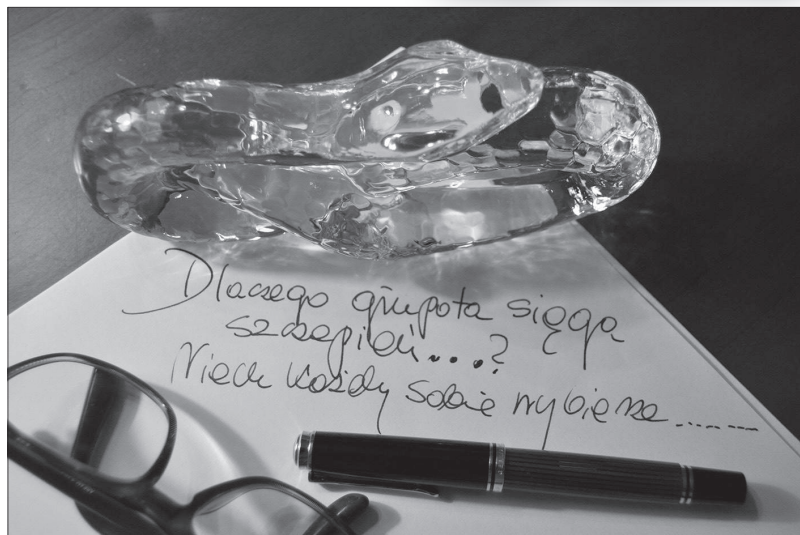 Dlaczego głupota sięga
szczepień....?
Niech każdy sobie wybierze.......